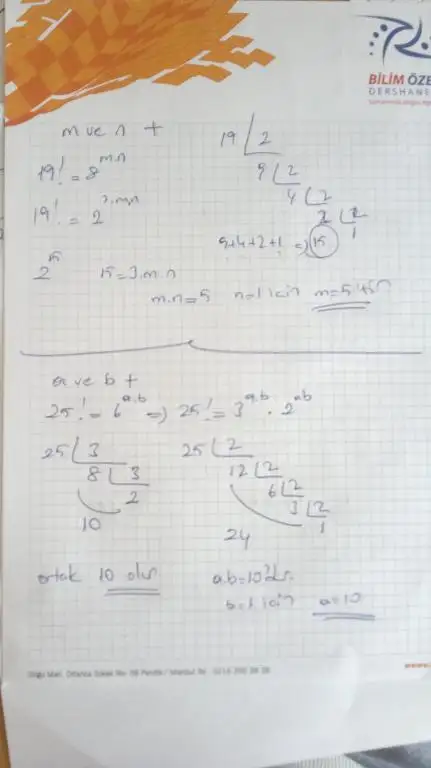 BİLİM ÖZE
DERSHANE
m ve n +
19! = 8^m.n
19! = 2^3.m.n
19 | 2
9 | 2
4 | 2
2 | 2
1
9+4+2+1 => 15
2^15 15=3.m.n
m.n=5 n=1 için m=5
a ve b +
25! = 6^a.b => 25! = 3^a.b . 2^ab
25 | 3
8 | 3
2
10
25 | 2
12 | 2
6 | 2
3 | 2
1
24
ortak 10 olur
a.b=10
b=1 için a=10